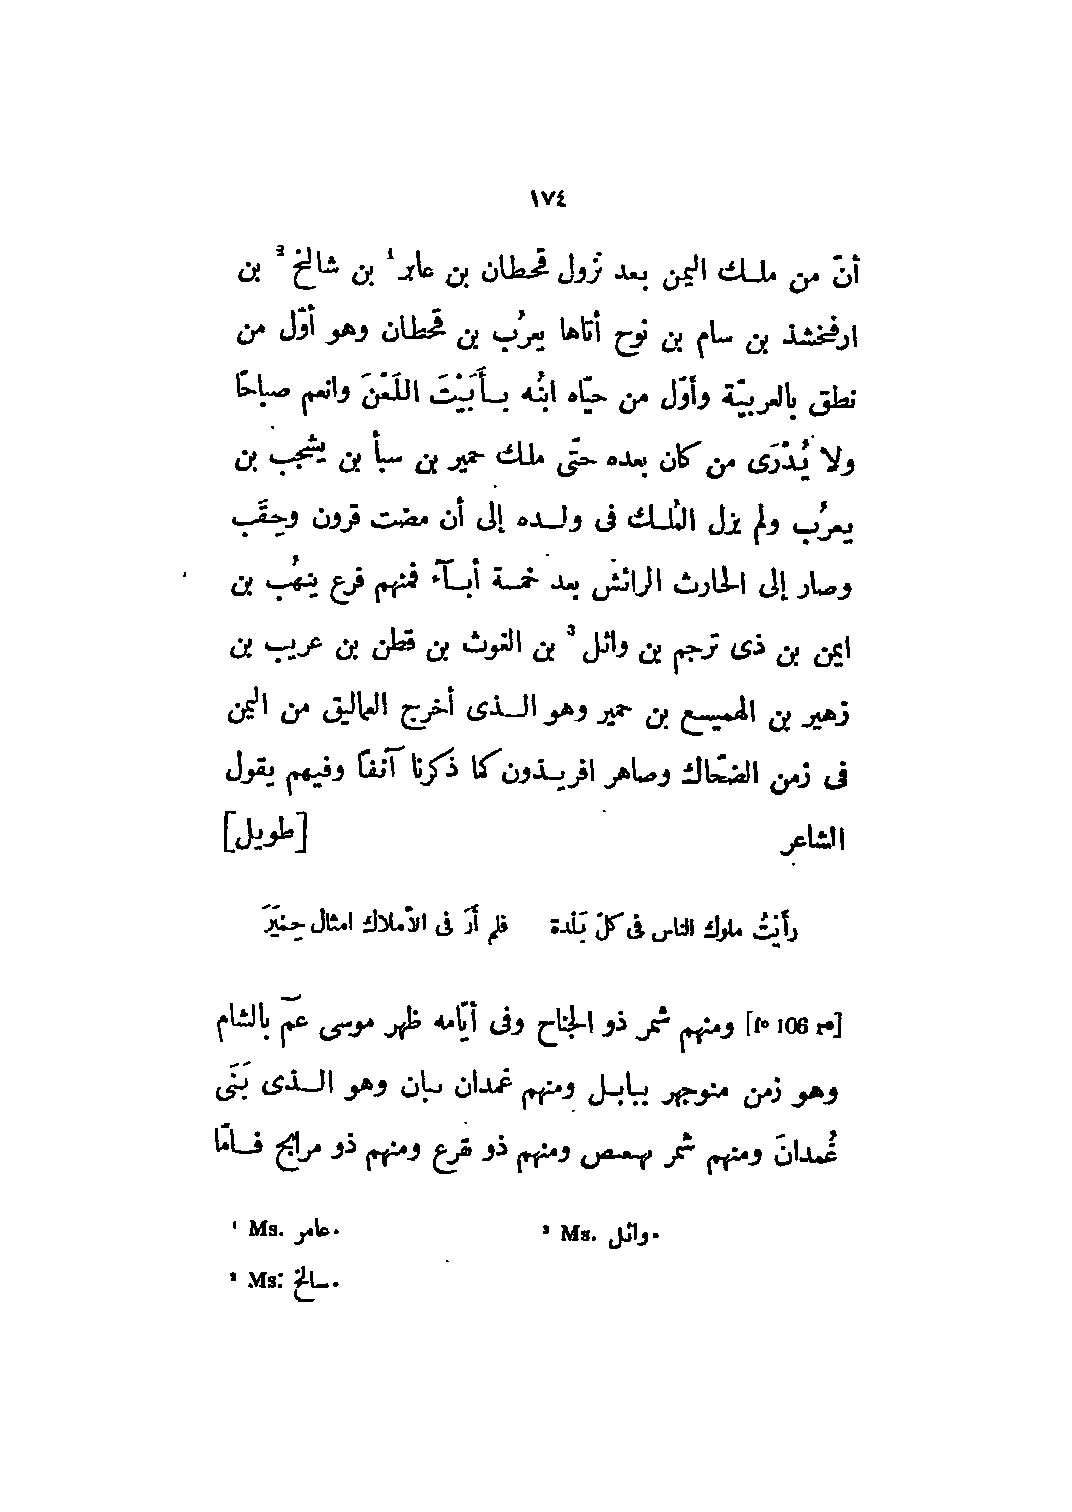 ١٧٤
أنّ من ملك اليمن بعد نزول قحطان بن عابر¹ بن شالخ² بن
ارفخشذ بن سام بن نوح أتاها يعرُب بن قحطان وهو أوّل من
نطق بالعربيّة وأوّل من حيّاه ابنُه بأَبَيْتَ اللَعْنَ وانعم صباحًا
ولا يُدْرَى من كان بعده حتّى ملك حمير بن سبأ بن يشجُب بن
يعرُب ولم يزل المُلك فى ولده إلى أن مضت قرون وحِقَب
وصار إلى الحارث الرائش بعد خمسة أبآء فمنهم فرع ينهُب بن
ايمن بن ذى ترجم بن وائل³ بن الغوث بن قطن بن عريب بن
زهير بن الهميسع بن حمير وهو الذى أخرج العماليق من اليمن
فى زمن الضحّاك وصاهر افريذون كما ذكرنا آنفًا وفيهم يقول
الشاعر [طويل]
رأيْتُ ملوك الناس فى كلّ بَلْدة فلم أرَ فى الأملاك امثال حِمْيَرَ
[fº 106 rº] ومنهم شمر ذو الجناح وفى أيّامه ظهر موسى عمّ بالشام
وهو زمن منوجهر ببابل ومنهم غمدان بان وهو الذى بَنَى
غُمدانَ ومنهم شمر يهعص ومنهم ذو يقرع ومنهم ذو مرايح فامّا
¹ Ms. عامر.
³ Ms. وائل.
² Ms. سالخ.